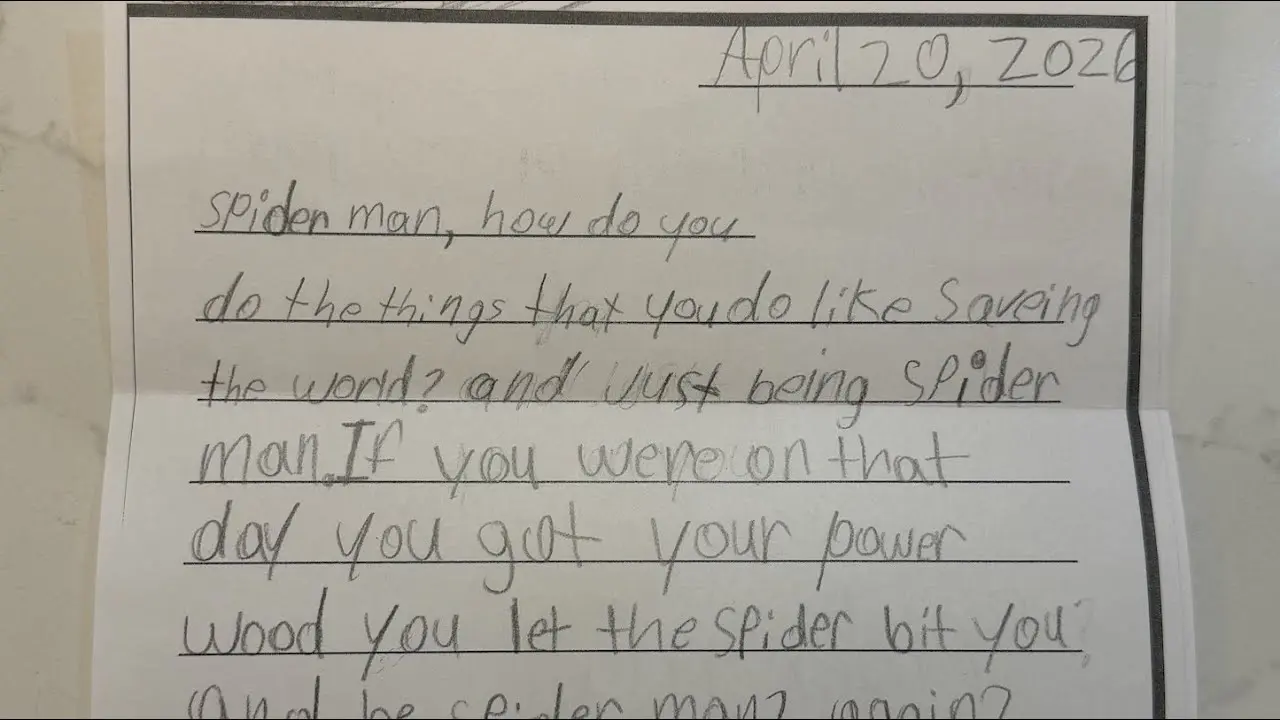 April 20, 2026
spider man, how do you
do the things that you do like Saveing
the world? and just being spider
man. If you were on that
day you got your power
wood you let the spider bit you?
and be spider man? again?